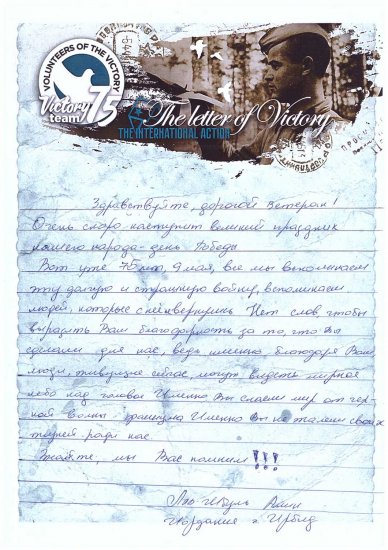 VOLUNTEERS OF THE VICTORY
Victory 75
team
The letter of Victory
THE INTERNATIONAL ACTION
Здравствуйте, дорогой Ветеран!
Очень скоро наступит великий праздник
нашего народа - день Победы
Вот уже 75 лет, 9 мая, все мы вспоминаем
эту долгую и страшную войну, вспоминаем
людей, которые с неё не вернулись. Нет слов, чтобы
выразить Вам благодарность за то, что Вы
сделали для нас, ведь именно благодаря Вам
люди, живущие сейчас, могут видеть мирное
небо над головой Именно Вы спасли мир от чер-
ной волны фашизма Именно Вы не жалели своих
жизней ради нас.
Знайте, мы Вас помним!!!
Иордания г. Ирбид